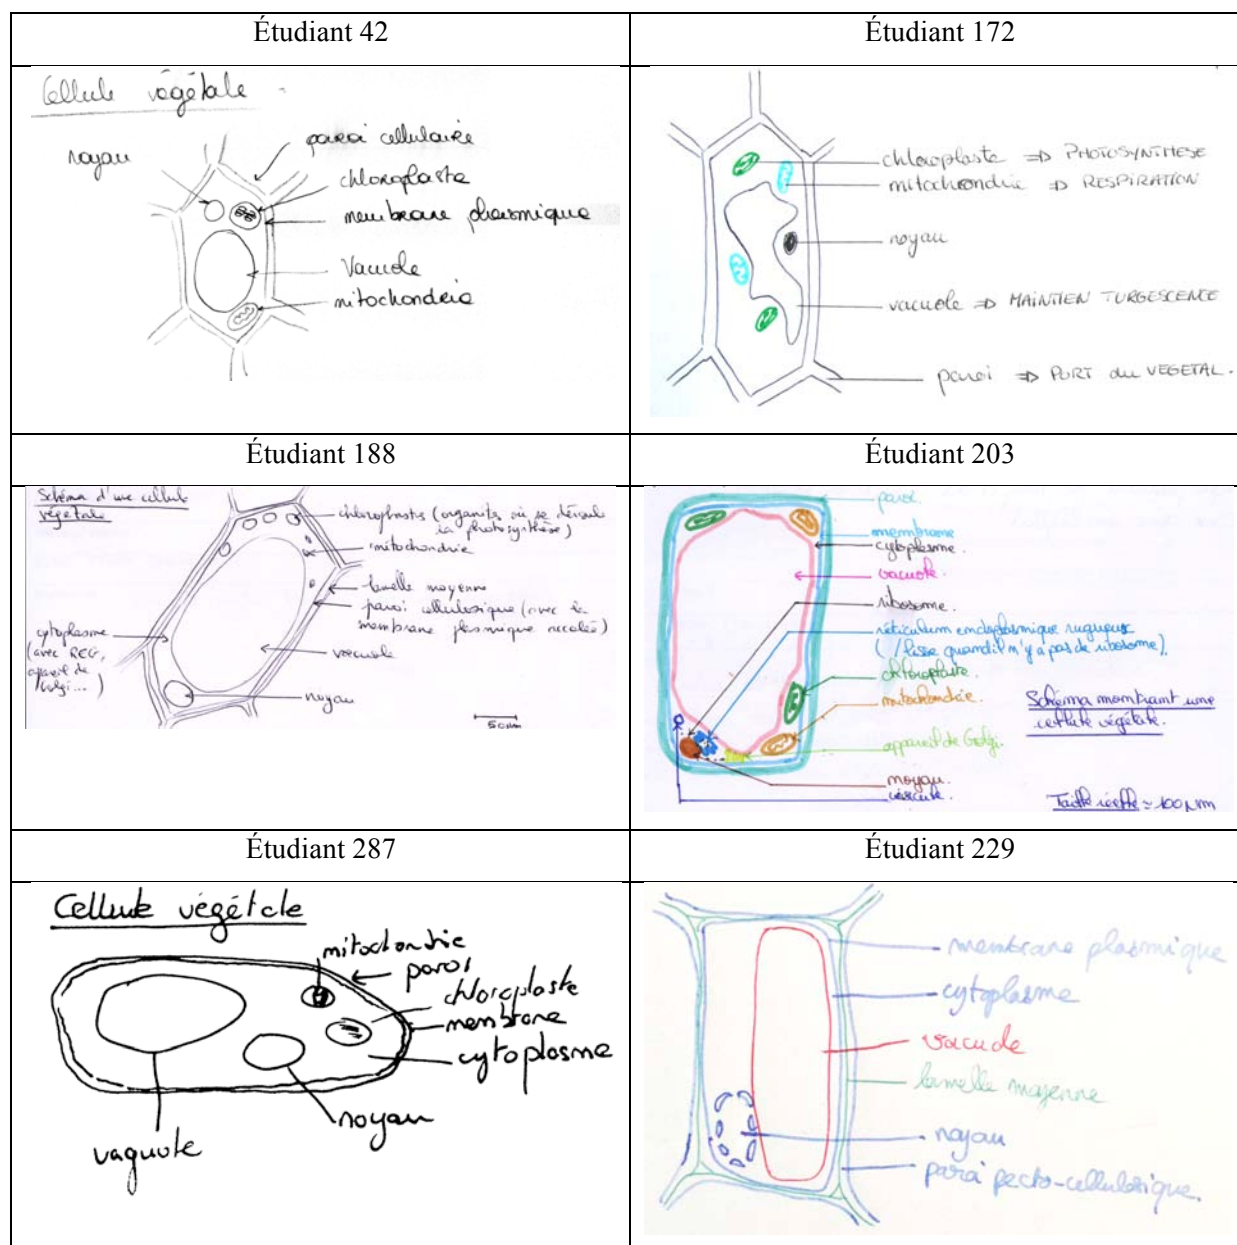 Étudiant 42
Cellule végétale
noyau
paroi cellulaire
chloroplaste
membrane plasmique
Vacuole
mitochondrie
Étudiant 172
chloroplaste => PHOTOSYNTHESE
mitochondrie => RESPIRATION
noyau
vacuole => MAINTIEN TURGESCENCE
paroi => PORT du VEGETAL.
Étudiant 188
Schéma d'une cellule
végétale
chloroplastes (organites où se déroule
la photosynthèse)
mitochondrie
lamelle moyenne
paroi cellulosique (avec la
membrane plasmique accolée)
cytoplasme
(avec REG,
appareil de
Golgi...)
vacuole
noyau
50µm
Étudiant 203
paroi.
membrane
cytoplasme.
vacuole.
ribosome.
réticulum endoplasmique rugueux
(/lisse quand il n'y a pas de ribosome).
chloroplaste.
mitochondrie.
Schéma montrant une
cellule végétale.
appareil de Golgi.
noyau.
vésicule.
Taille réelle ≈ 100µm
Étudiant 287
Cellule végétale
mitochondrie
paroi
chloroplaste
membrane
cytoplasme
noyau
vaquole
Étudiant 229
membrane plasmique
cytoplasme
vacuole
lamelle moyenne
noyau
paroi pecto-cellulosique.